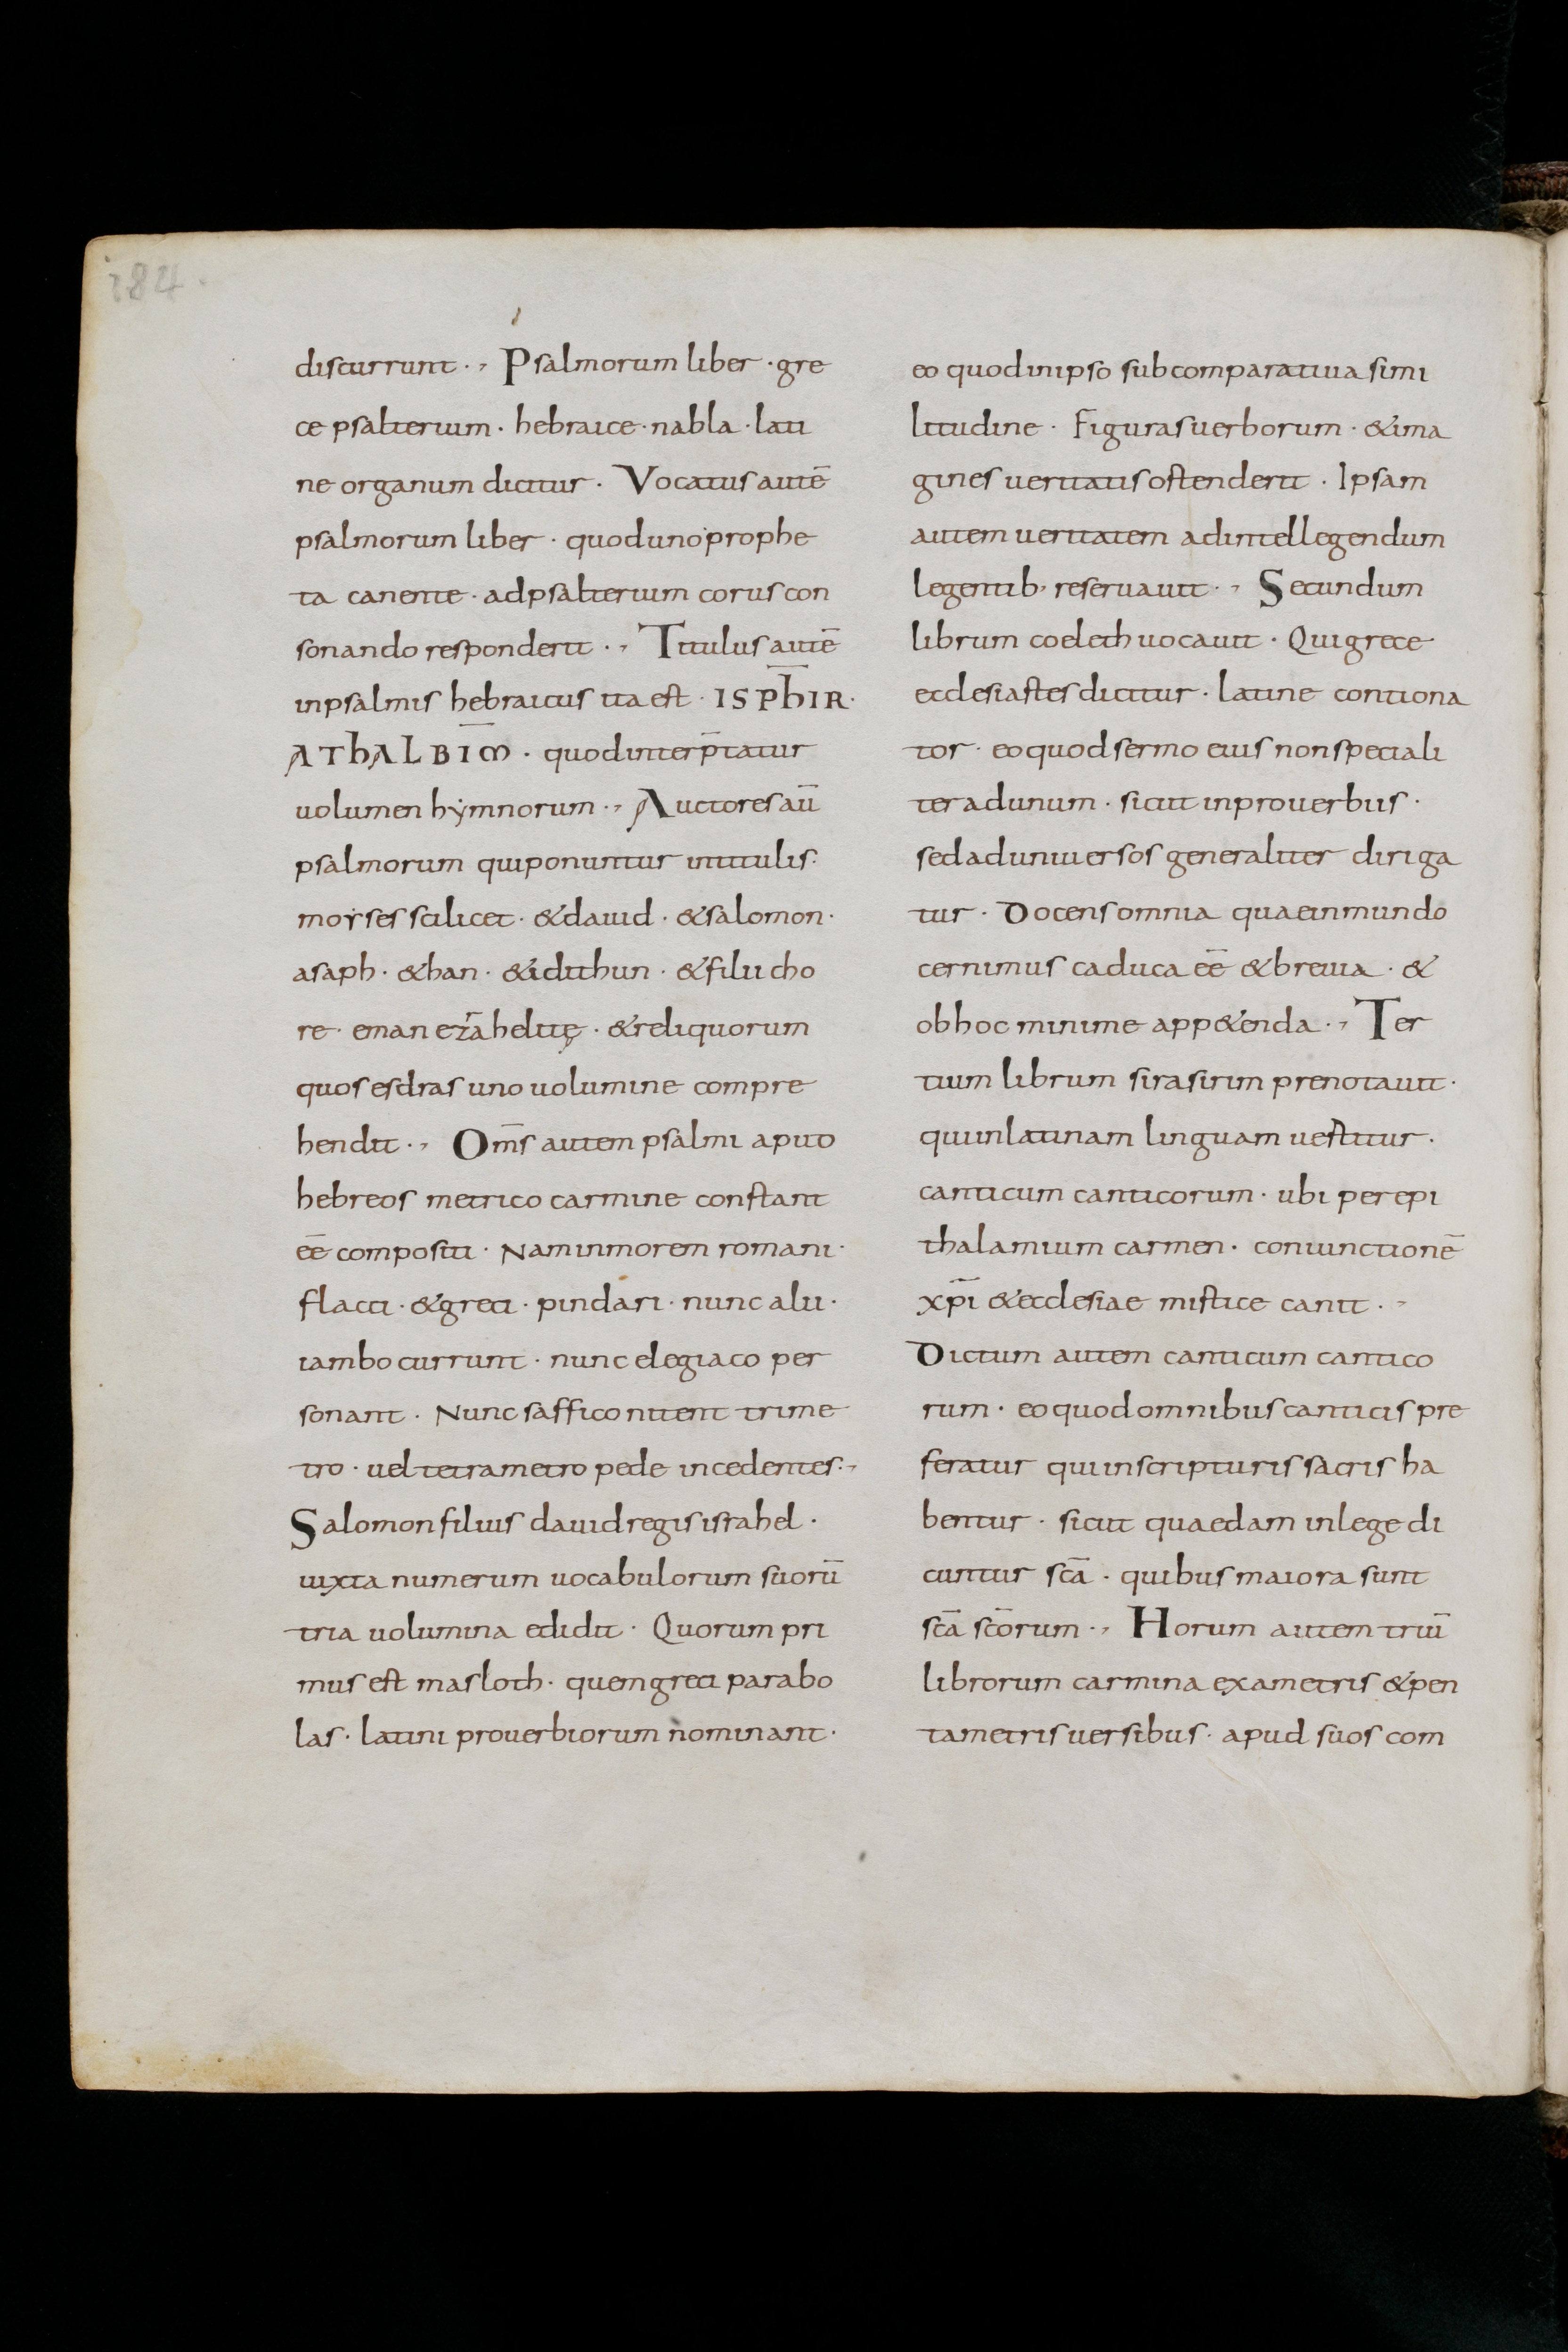 184.
discurrunt ·, Psalmorum liber · gre
ce psalterium · hebraice · nabla · lati
ne organum dicitur · Vocatus autē
psalmorum liber · quod uno prophe
ta canente · ad psalterium corus con
sonando responderit ·, Titulus autē
in psalmis hebraicus ita est · ISPh̅IR·
AThALBI̅M · quod interp̄tatur
uolumen hẏmnorum ·, Auctores aū
psalmorum qui ponuntur in titulis:
moẏses scilicet · & dauid · & salomon·
asaph · & han · & idithun · & filii cho
re · eman ezrahelitę · & reliquorum
quos esdras uno uolumine compre
hendit ·, Om̄s autem psalmi aput
hebreos metrico carmine constant
eē compositi · Nam in morem romani·
flacci · & greci · pindari · nunc alii ·
iambo currunt · nunc elegiaco per
sonant · Nunc saffico nitent trime
tro · uel tetrametro pede incedentes:,
Salomon filius dauid regis israhel ·
iuxta numerum uocabulorum suorū
tria uolumina edidit · Quorum pri
mus est masloth · quem greci parabo
las · latini prouerbiorum nominant ·
eo quod in ipso sub comparatiua simi
litudine · Figuras uerborum · & ima
gines ueritatis ostenderit · Ipsam
autem ueritatem ad intellegendum
legentib, reseruauit ·, Secundum
librum coeleth uocauit · Qui grece
ecclesiastes dicitur · latine contiona
tor · eo quod sermo eius non speciali
ter ad unum · sicut in prouerbiis ·
sed ad uniuersos generaliter diriga
tur · Docens omnia quae in mundo
cernimus caduca eē & breuia · &
ob hoc minime app&enda ·, Ter
tium librum sirasirim prenotauit ·
qui in latinam linguam uestitur ·
canticum canticorum · ubi per epi
thalamium carmen · coniunctionē
xp̄i & ecclesiae mistice canit ·,
Dictum autem canticum cantico
rum · eo quod omnibus canticis pre
feratur qui in scripturis sacris ha
bentur · sicut quaedam in lege di
cuntur scā · quibus maiora sunt
scā scōrum ·, Horum autem triū
librorum carmina exametris & pen
tametris uersibus · apud suos com